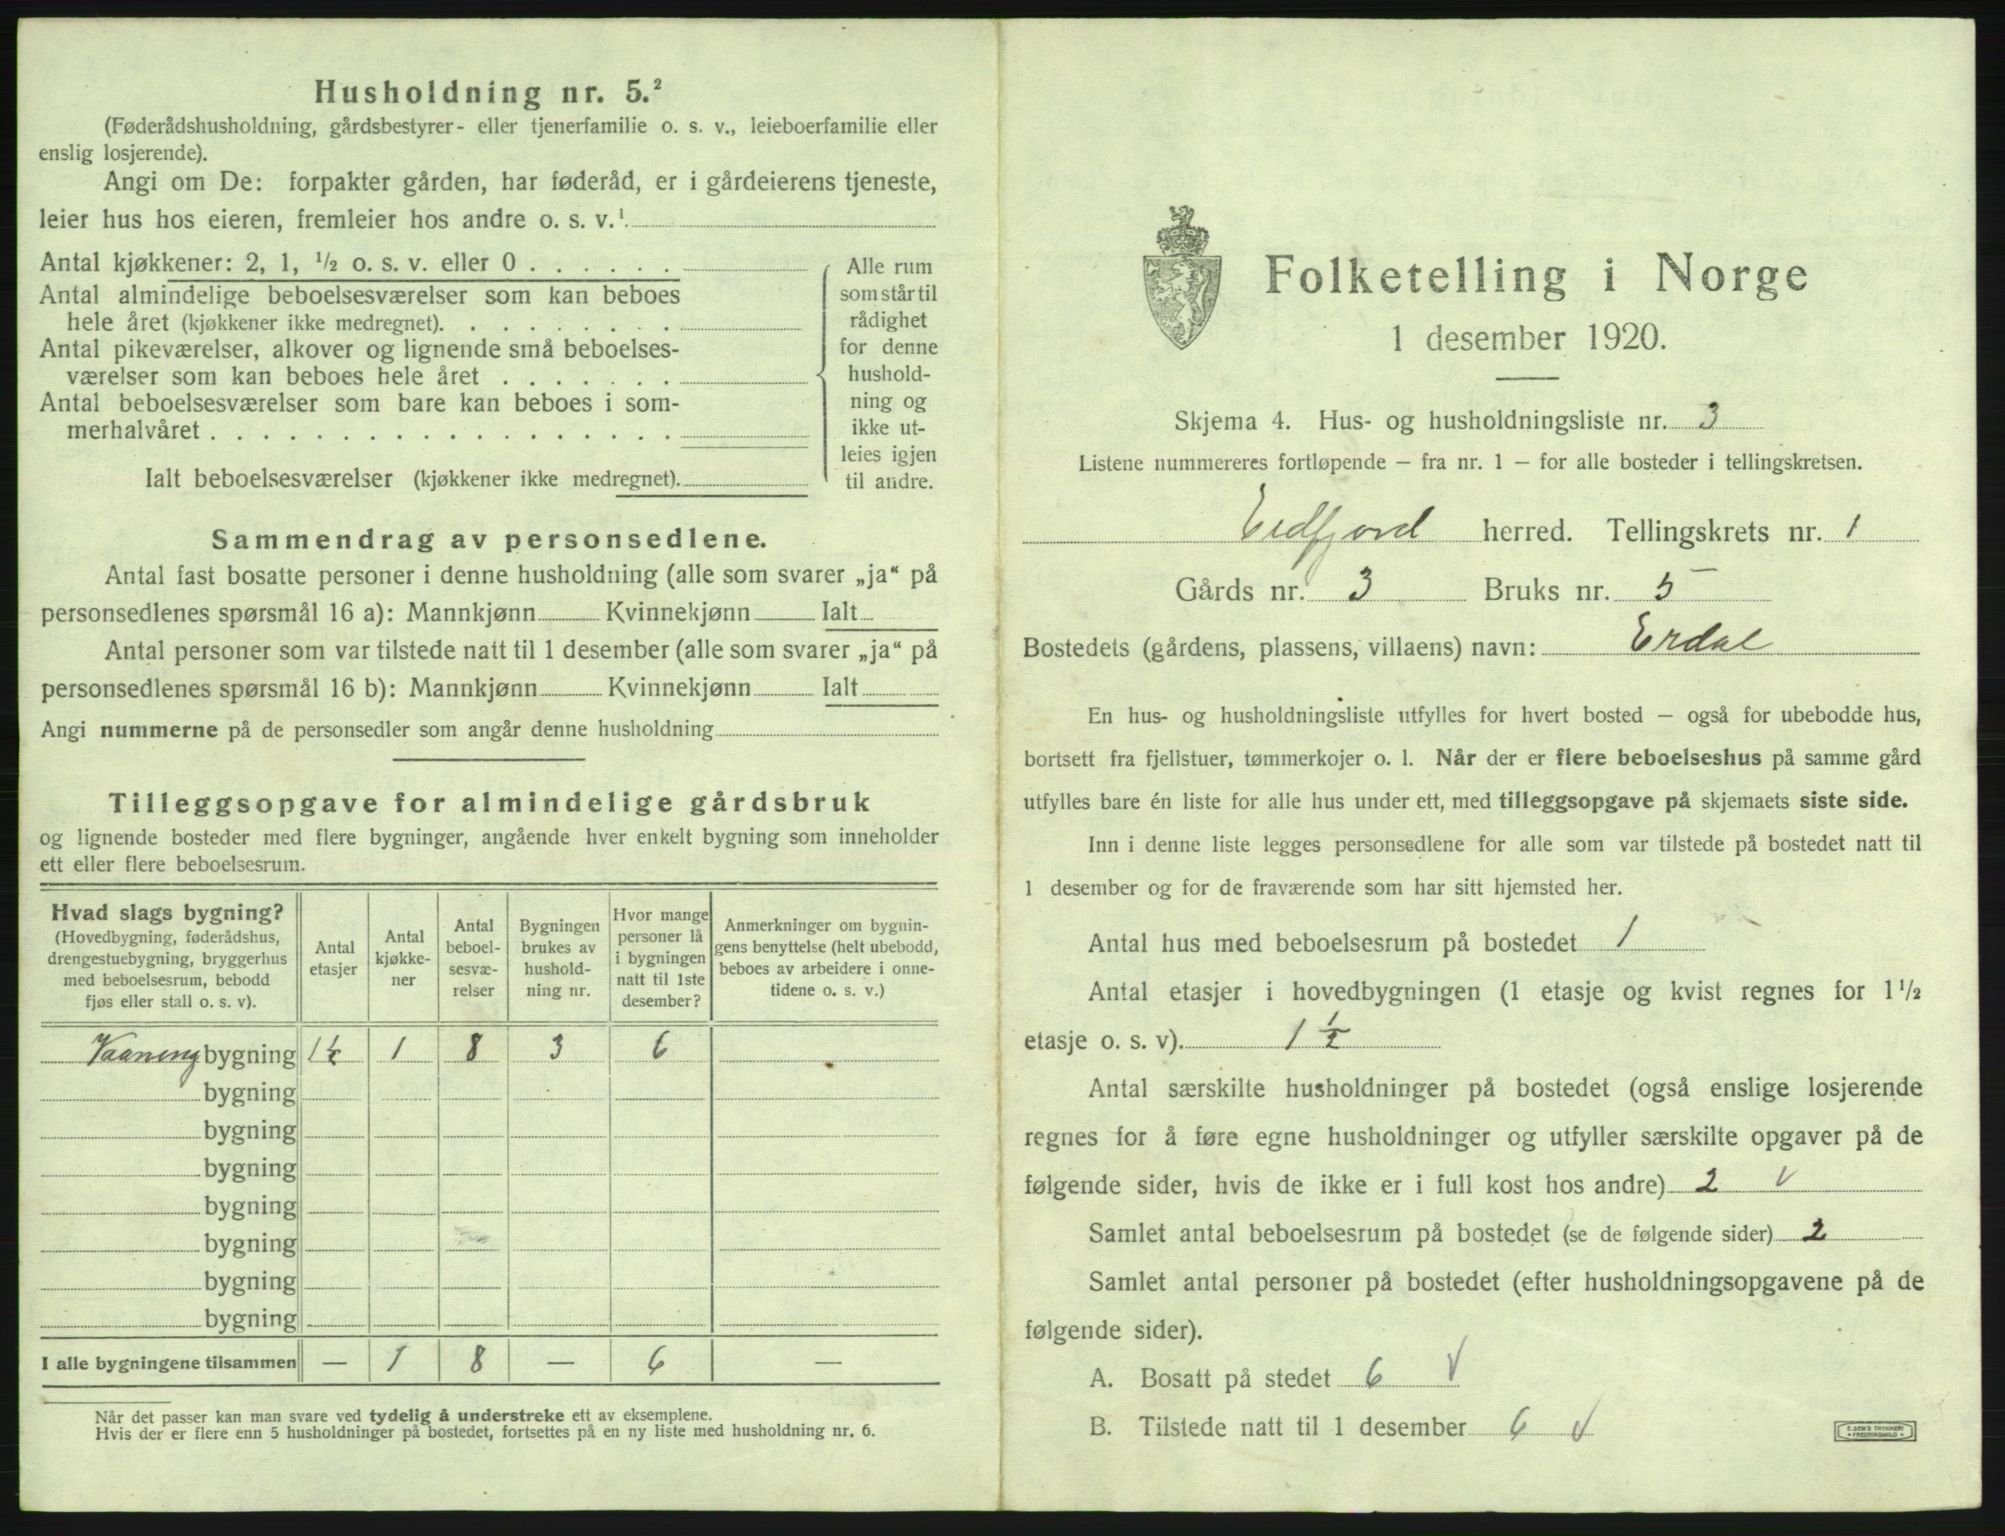 Husholdning nr. 5.²
(Føderådshusholdning, gårdsbestyrer- eller tjenerfamilie o. s. v., leieboerfamilie eller
enslig losjerende).
Angi om De: forpakter gården, har føderåd, er i gårdeierens tjeneste,
leier hus hos eieren, fremleier hos andre o. s. v.¹
Antal kjøkkener: 2, 1, ½ o. s. v. eller 0 . . . . . .
Antal almindelige beboelsesværelser som kan beboes
hele året (kjøkkener ikke medregnet). . . . . . . . .
Antal pikeværelser, alkover og lignende små beboelses-
værelser som kan beboes hele året . . . . . . .
Antal beboelsesværelser som bare kan beboes i som-
merhalvåret . . . . . . . . . . . . . . . . . .
Ialt beboelsesværelser (kjøkkener ikke medregnet).
Alle rum
som står til
rådighet
for denne
hushold-
ning og
ikke ut-
leies igjen
til andre.
Sammendrag av personsedlene.
Antal fast bosatte personer i denne husholdning (alle som svarer „ja“ på
personsedlenes spørsmål 16 a): Mannkjønn Kvinnekjønn Ialt
Antal personer som var tilstede natt til 1 desember (alle som svarer „ja“ på
personsedlenes spørsmål 16 b): Mannkjønn Kvinnekjønn Ialt
Angi nummerne på de personsedler som angår denne husholdning
Tilleggsopgave for almindelige gårdsbruk
og lignende bosteder med flere bygninger, angående hver enkelt bygning som inneholder
ett eller flere beboelsesrum.
Hvad slags bygning?
(Hovedbygning, føderådshus,
drengestuebygning, bryggerhus
med beboelsesrum, bebodd
fjøs eller stall o. s. v).
Antal
etasjer
Antal
kjøkke-
ner
Antal
beboel-
sesvæ-
relser
Bygningen
brukes av
hushold-
ning nr.
Hvor mange
personer lå
i bygningen
natt til 1ste
desember?
Anmerkninger om bygnin-
gens benyttelse (helt ubebodd,
beboes av arbeidere i onne-
tidene o. s. v.)
Vaaningbygning 1½ 1 8 3 6
bygning
bygning
bygning
bygning
bygning
bygning
bygning
I alle bygningene tilsammen — 1 8 — 6 —
Når det passer kan man svare ved tydelig å understreke ett av eksemplene.
Hvis der er flere enn 5 husholdninger på bostedet, fortsettes på en ny liste med husholdning nr. 6.
Folketelling i Norge
1 desember 1920.
Skjema 4. Hus- og husholdningsliste nr. 3
Listene nummereres fortløpende – fra nr. 1 – for alle bosteder i tellingskretsen.
Eidfjord herred. Tellingskrets nr. 1
Gårds nr. 3 Bruks nr. 5
Bostedets (gårdens, plassens, villaens) navn: Erdal
En hus- og husholdningsliste utfylles for hvert bosted – også for ubebodde hus,
bortsett fra fjellstuer, tømmerkojer o. l. Når der er flere beboelseshus på samme gård
utfylles bare én liste for alle hus under ett, med tilleggsopgave på skjemaets siste side.
Inn i denne liste legges personsedlene for alle som var tilstede på bostedet natt til
1 desember og for de fraværende som har sitt hjemsted her.
Antal hus med beboelsesrum på bostedet 1
Antal etasjer i hovedbygningen (1 etasje og kvist regnes for 1½
etasje o. s. v). 1½
Antal særskilte husholdninger på bostedet (også enslige losjerende
regnes for å føre egne husholdninger og utfyller særskilte opgaver på de
følgende sider, hvis de ikke er i full kost hos andre) 2 √
Samlet antal beboelsesrum på bostedet (se de følgende sider) 2
Samlet antal personer på bostedet (efter husholdningsopgavene på de
følgende sider).
A. Bosatt på stedet 6 √
B. Tilstede natt til 1 desember 6 √